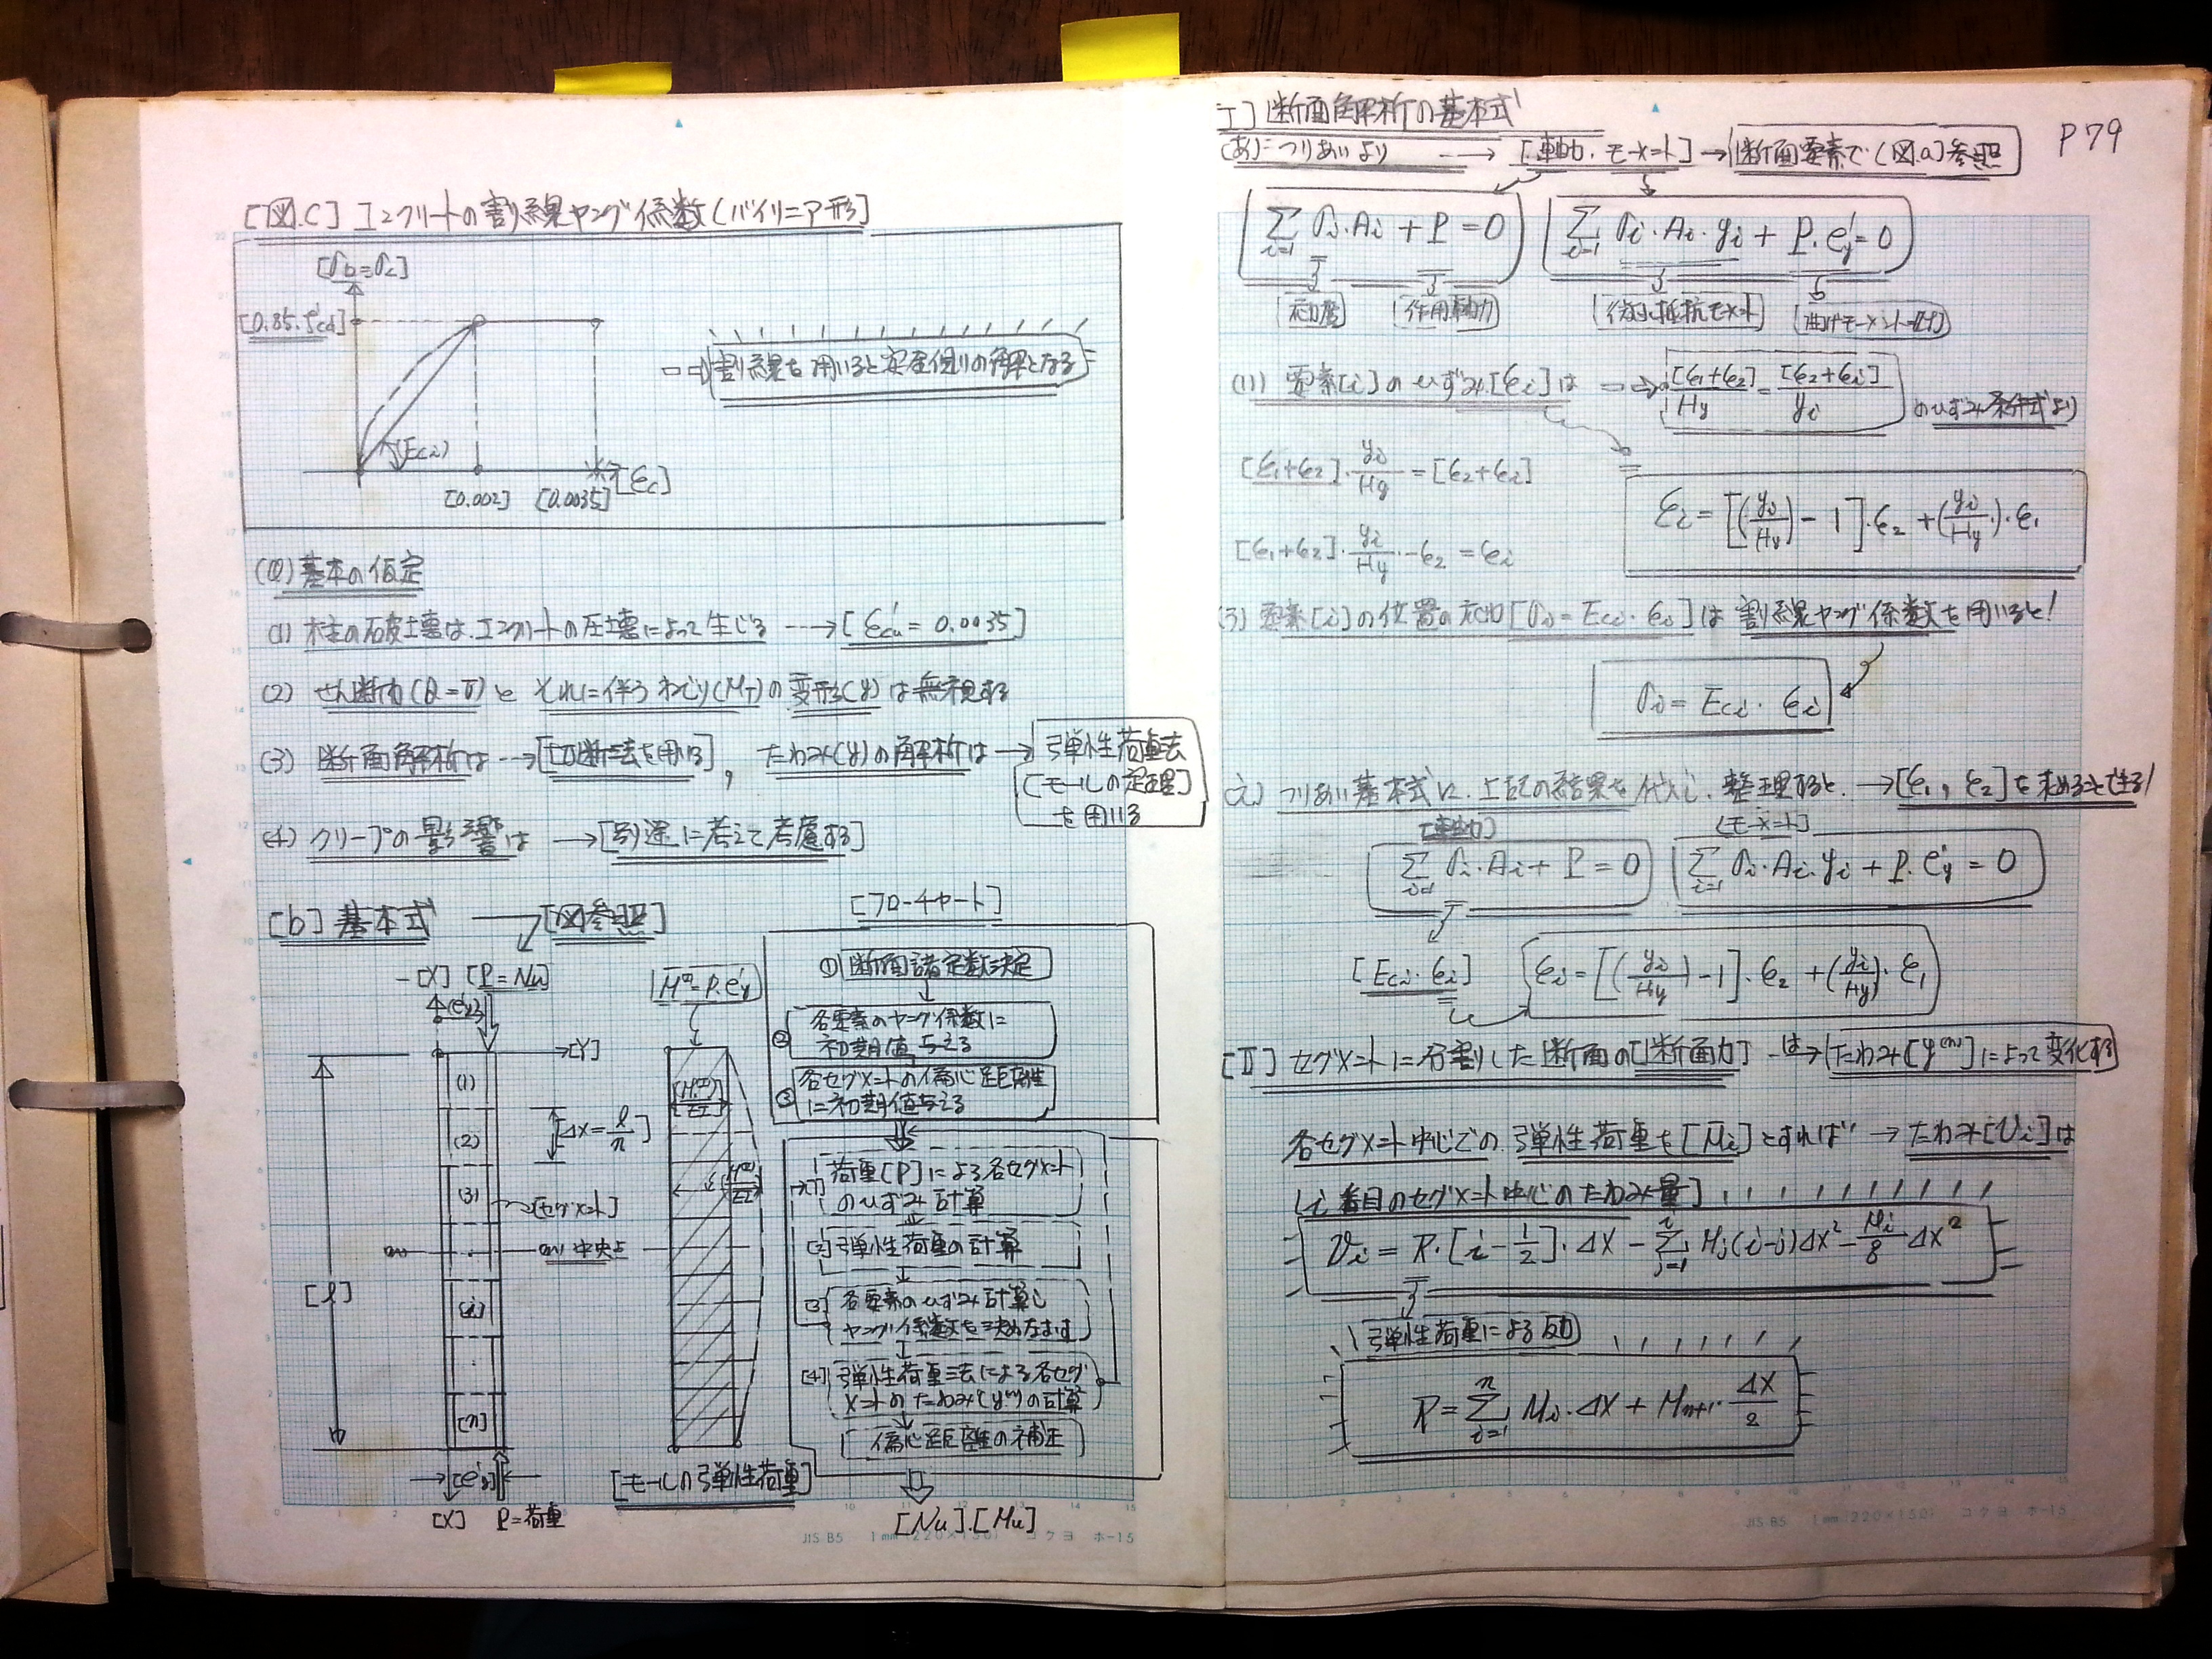 [図.C] コンクリートの割線ヤング係数(バイリニア形)
[σb=σc]
[0.85·f'cd]
(Eci)
[εc]
[0.002] [0.0035]
⇒割線を用いると安全側の解となる
基本の仮定
(1) 柱の破壊は、コンクリートの圧壊によって生じる → [ε'cu = 0.0035]
(2) せん断力 と それに伴うねじり(MT)の変形(y)は無視する
(3) 断面解析は→[切断法を用いる], たわみ(y)の解析は→弾性荷重法
[モールの定理]
を用いる
(4) クリープの影響は → [別途に考えて考慮する]
[b] 基本式 → [図参照]
[フローチャート]
-[X] [P=Nu]
[Y]
(1)
(2)
(3)
[Δx = ℓ/n]
[セグメント]
中央点
[i]
[n]
[ℓ]
[e'y]
[X] P=荷重
M⁽⁰⁾=P·e'y
[モールの弾性荷重]
① 断面諸定数決定
② 各要素のヤング係数に
初期値与える
③ 各セグメントの偏心距離
に初期値与える
[1] 荷重[P]による各セグメント
のひずみ計算
[2] 弾性荷重の計算
[3] 各要素のひずみ計算し
ヤング係数を決めなおす
[4] 弾性荷重法による各セグ
メントのたわみ(y⁽ⁿ⁾)の計算
偏心距離の補正
[Nu].[Mu]
P79
I] 断面解析の基本式
(あ) つりあいより → [軸力、モーメント] → 断面要素で(図.a)参照
Σ(i=1) σi·Ai + P = 0
Σ(i=1) σi·Ai·yi + P·e'y = 0
[応力度] [作用軸力]
(い) 要素[i]のひずみ[εi]は → [ε1+ε2]/Hy = [ε2+εi]/yi のひずみ条件式より
[ε1+ε2]·yi/Hy = [ε2+εi]
[ε1+ε2]·yi/Hy - ε2 = εi
εi = [(yi/Hy) - 1]·ε2 + (yi/Hy)·ε1
(う) 要素[i]の位置の応力[σi = Eci·εi]は 割線ヤング係数を用いると!
σi = Eci·εi
(え) つりあい基本式に、上記の結果を代入し、整理すると、→[ε1, ε2]を求めることできる!
[軸力]
[モーメント]
Σ(i=1) σi·Ai + P = 0
Σ(i=1) σi·Ai·yi + P·e'y = 0
[Eci·εi]
εi = [(yi/Hy) - 1]·ε2 + (yi/Hy)·ε1
[II] セグメントに分割した断面の[断面力] は→ たわみ[y⁽ⁿ⁾]によって変化する
各セグメント中心での弾性荷重を[Mi]とすれば → たわみ[Vi]は
[i 番目のセグメント中心のたわみ量]
Vi = R·[i - 1/2]·Δx - Σ(j=1→i) Mj(i-j)Δx² - Mi/8 Δx²
弾性荷重による反力
R = Σ(i=1→n) Mi·Δx + Mn+1·Δx/2
JIS B5 1mm (220×150) コクヨ ホ-15
JIS B5 1mm (220×150) コクヨ ホ-15